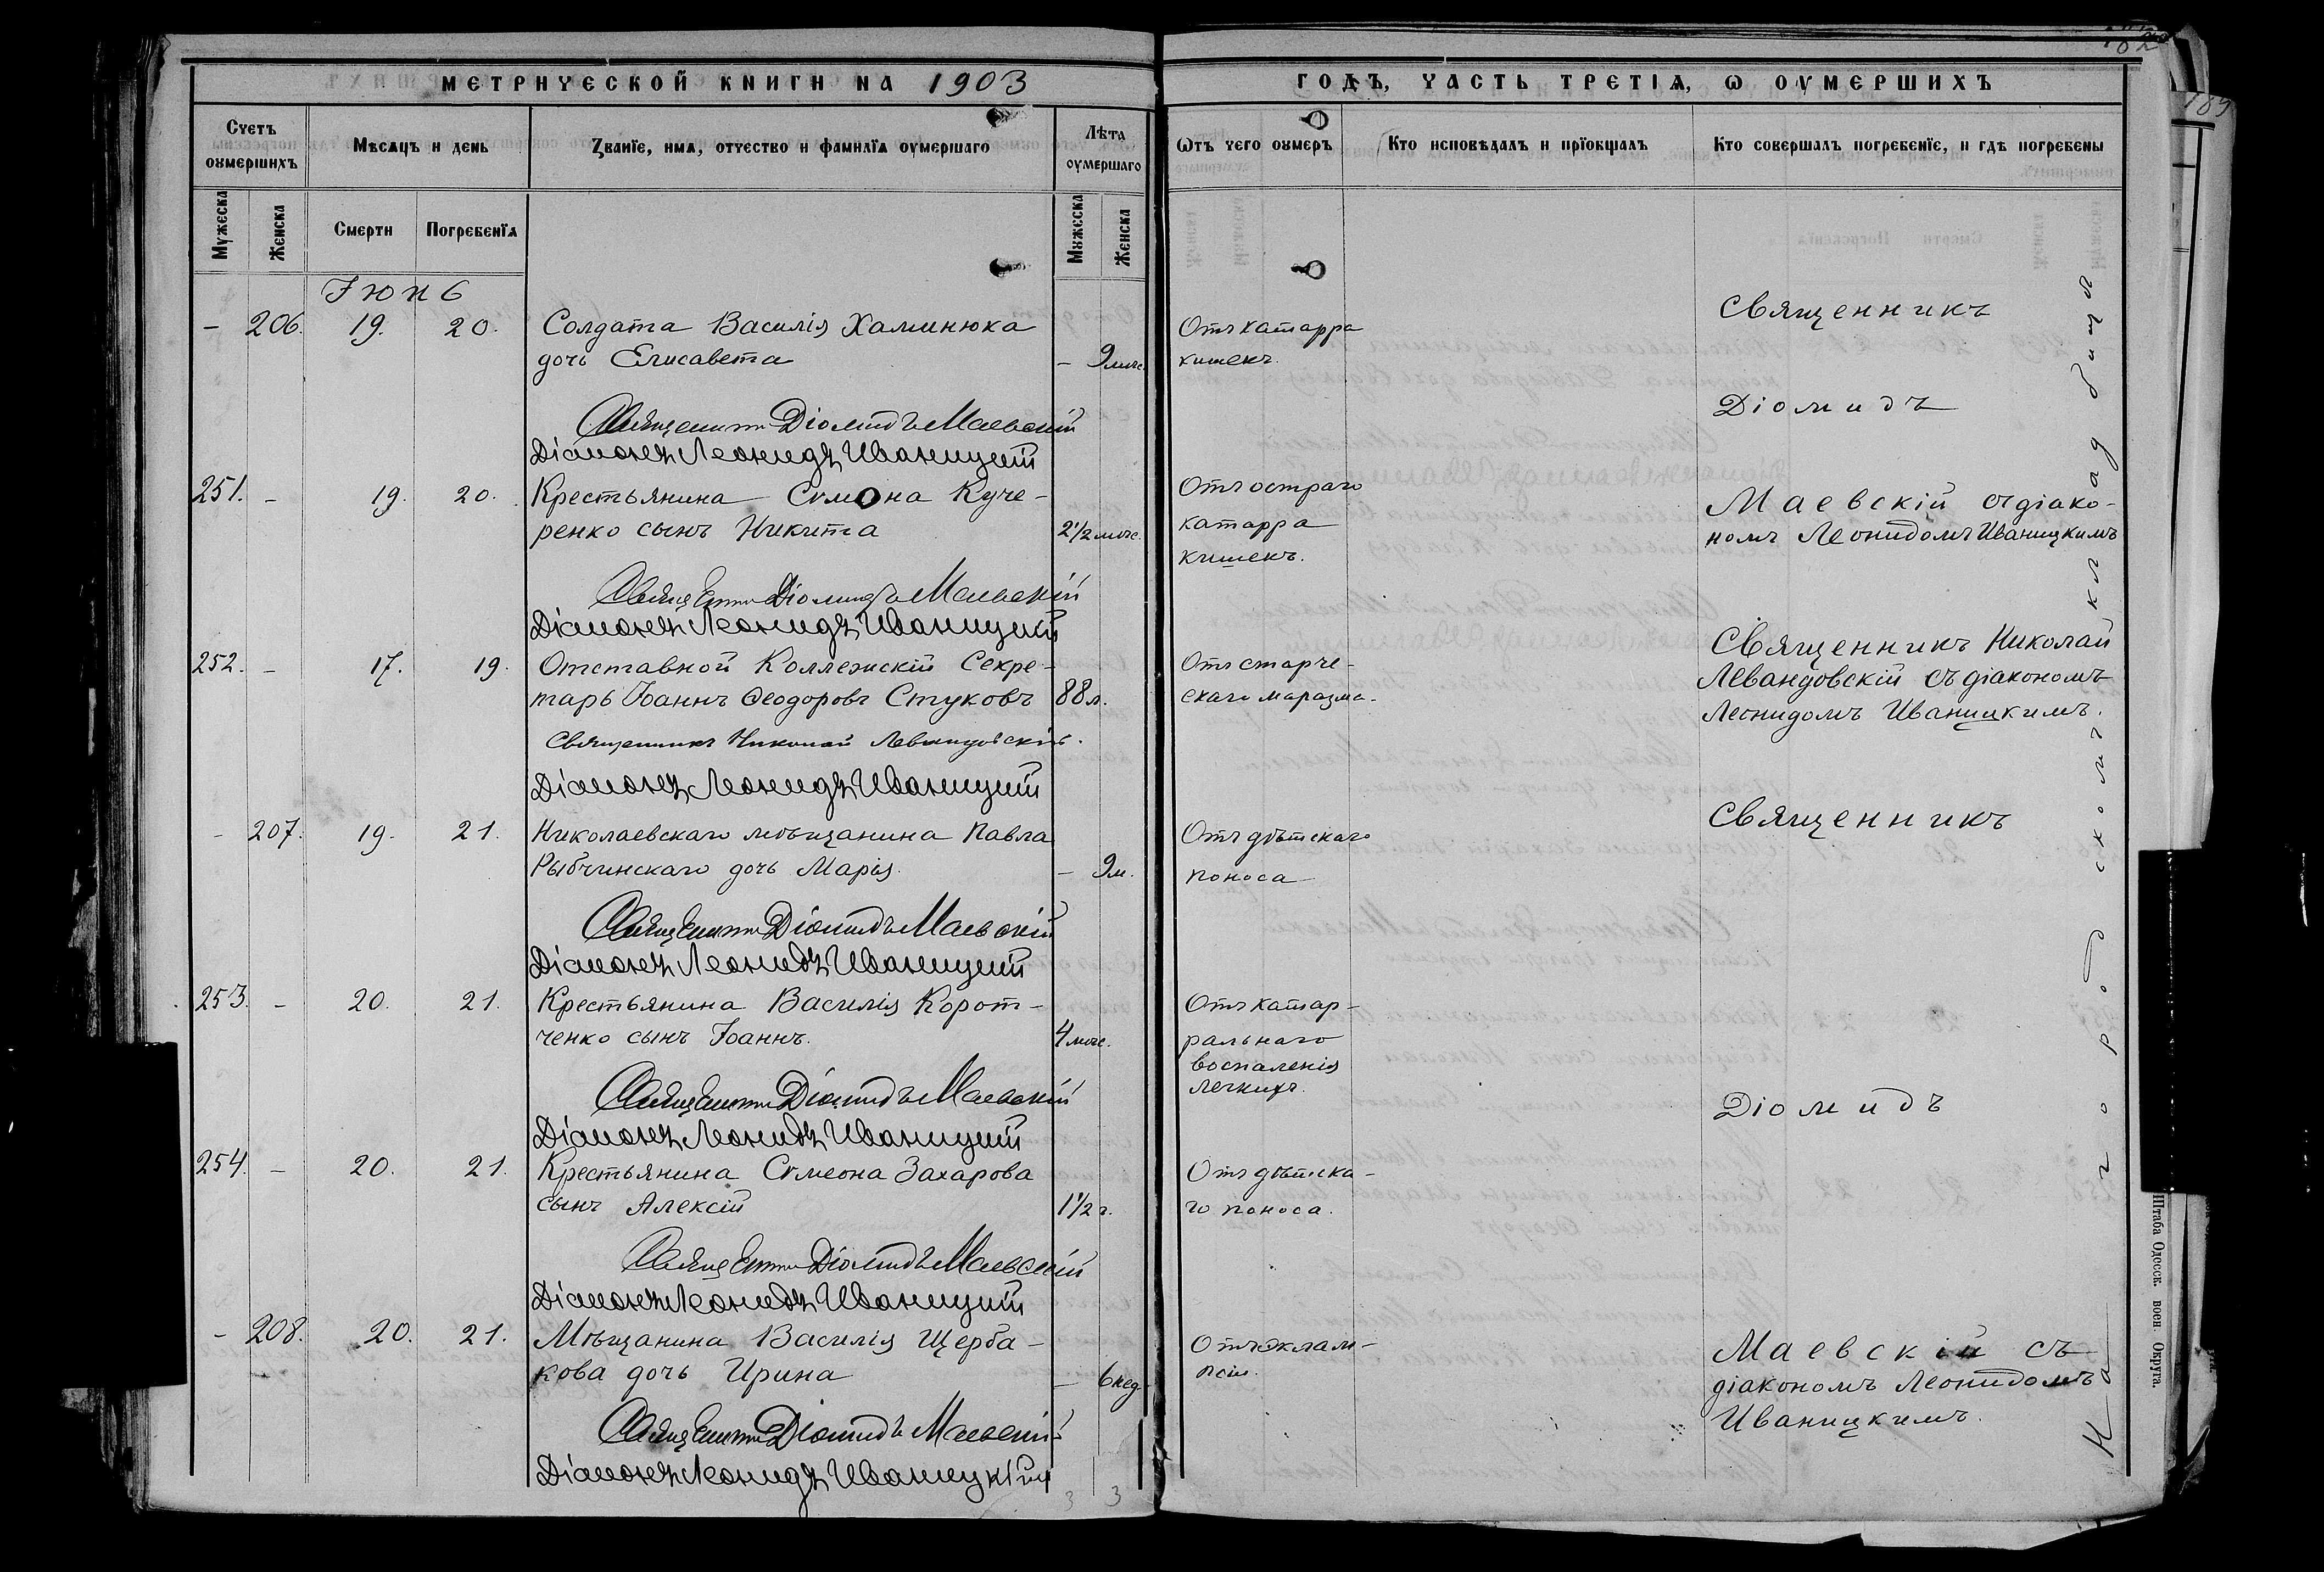 МЕТРИЧЕСКОЙ КНИГИ НА 1903
ГОДЪ, ЧАСТЬ ТРЕТІЯ, Ѡ ОУМЕРШИХЪ
182
189
Счетъ оумершихъ
Мѣсяцъ и день
Званїе, имя, отчество и фамилїя оумершаго
Лѣта оумершаго
Ѿтъ чего оумеръ
Кто исповѣдалъ и прїобщалъ
Кто совершалъ погребенїе, и гдѣ погребены
Мужеска
Женска
Смерти
Погребенїя
Мужеска
Женска
Іюнь
– 206. 19. 20. Солдата Василія Хаминюка
дочь Елисавета – 9 мѣс.
Отъ катарра
кишекъ.
Священникъ Діомидъ Маевскій
Діаконъ Леонидъ Иваницкій
251. – 19. 20. Крестьянина Сѵмеона Куче-
ренко сынъ Никита 2½ мѣс.
Отъ остраго
катарра
кишекъ.
Священникъ Діомидъ Маевскій
Діаконъ Леонидъ Иваницкій
Священникъ
Діомидъ
Маевскій съ діако-
номъ Леонидомъ Иваницкимъ
252. – 17. 19. Отставной Коллежскій Секре-
тарь Іоаннъ Ѳеодоровъ Стуковъ 88 л.
Отъ старче-
скаго маразма.
Священникъ Николай
Левандовскій съ діакономъ
Леонидомъ Иваницкимъ.
Священникъ Николай Левандовскій.
Діаконъ Леонидъ Иваницкій
– 207. 19. 21. Николаевскаго мѣщанина Павла
Рыбчинскаго дочь Марія. – 9 м.
Отъ дѣтскаго
поноса
Священникъ Діомидъ Маевскій
Діаконъ Леонидъ Иваницкій
253. – 20. 21. Крестьянина Василія Корот-
ченко сынъ Іоаннъ. 4 мѣс.
Отъ катар-
ральнаго
воспаленія
легкихъ.
Священникъ Діомидъ Маевскій
Діаконъ Леонидъ Иваницкій
254. – 20. 21. Крестьянина Сѵмеона Захарова
сынъ Алексій 1½ г.
Отъ дѣтска-
го поноса.
Священникъ Діомидъ Маевскій
Діаконъ Леонидъ Иваницкій
– 208. 20. 21. Мѣщанина Василія Щерба-
кова дочь Ирина – 6 нед.
Отъ эклам-
псіи.
Священникъ Діомидъ Маевскій
Діаконъ Леонидъ Иваницкій
3 3
Священникъ
Діомидъ
Маевскій съ
діакономъ Леонидомъ
Иваницкимъ.
На городскомъ кладбищѣ
Штаба Одесск. воен. Округа.